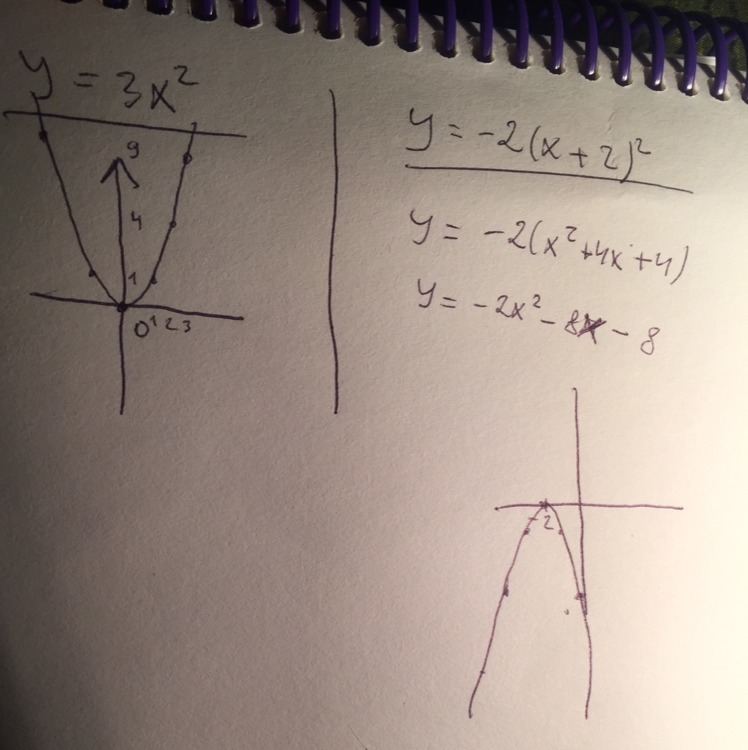 y = 3x²
9
4
1
0 1 2 3
y = -2(x + 2)²
y = -2(x² + 4x + 4)
y = -2x² - 8x - 8
-2